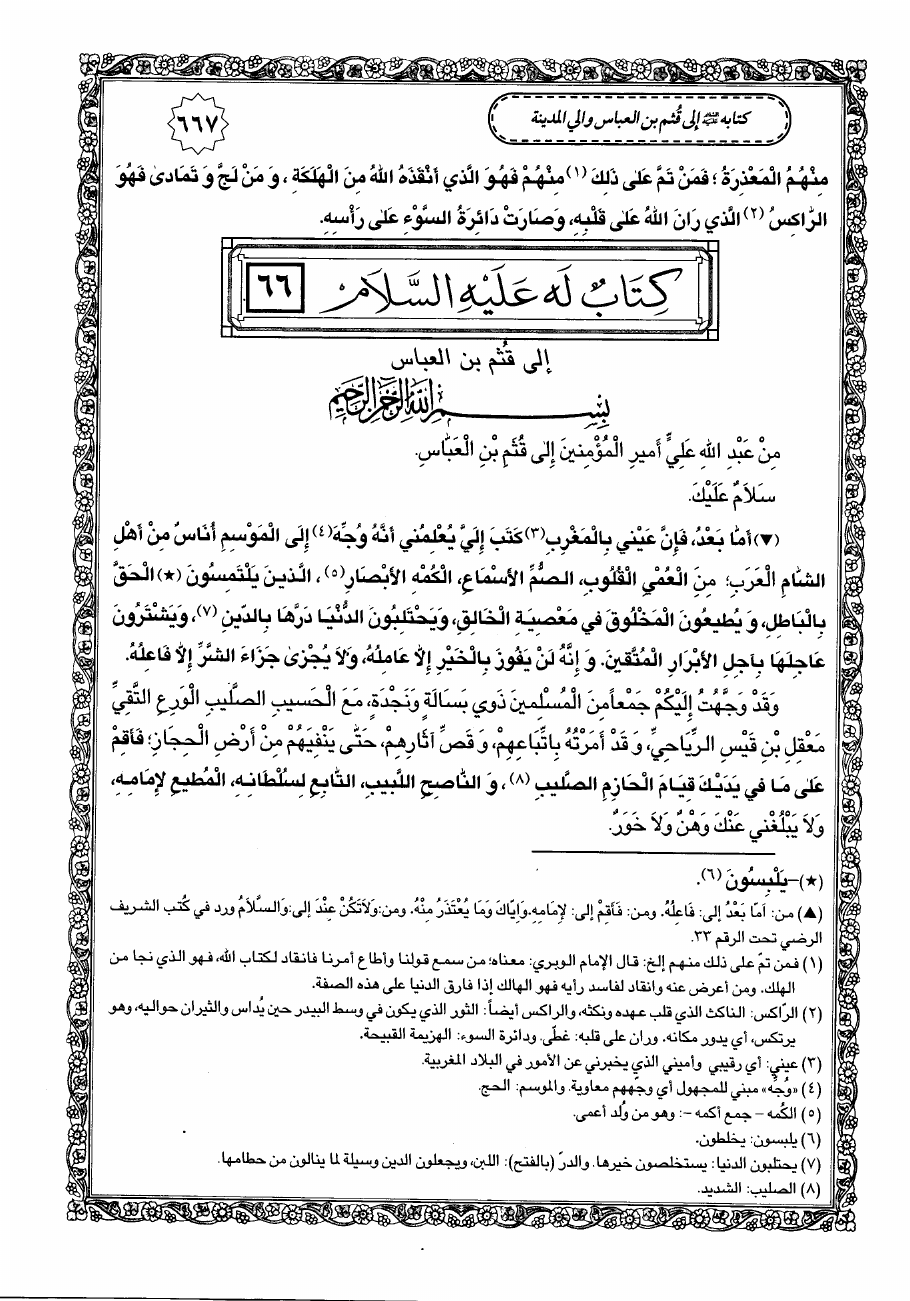 كتابه عليه السلام إلى قُثم بن العباس والي المدينة
٦٦٧
مِنْهُمُ الْمَعْذِرَةُ ؛ فَمَنْ تَمَّ عَلىٰ ذٰلِكَ (١) مِنْهُمْ فَهُوَ الَّذي أَنْقَذَهُ اللهُ مِنَ الْهَلَكَةِ ، وَ مَنْ لَجَّ وَ تَمَادىٰ فَهُوَ
الرّاكِسُ (٢) الَّذي رَانَ اللهُ عَلىٰ قَلْبِهِ، وَصَارَتْ دَائِرَةُ السَّوْءِ عَلىٰ رَأْسِهِ.
كِتَابٌ لَه عَلَيْهِ السَّلَامُ ٦٦
إلى قُثم بن العباس
بِسْمِ اللهِ الرَّحْمٰنِ الرَّحيمِ
مِنْ عَبْدِ اللهِ عَلِيٍّ أَميرِ الْمُؤْمِنينَ إِلىٰ قُثَمِ بْنِ الْعَبّاسِ.
سَلاَمٌ عَلَيْكَ.
(▼) أَمّا بَعْدُ، فَإِنَّ عَيْني بِالْمَغْرِبِ (٣) كَتَبَ إِلَيَّ يُعْلِمُني أَنَّهُ وُجِّهَ (٤) إِلَى الْمَوْسِمِ أُنَاسٌ مِنْ أَهْلِ
الشّامِ الْعَرَبِ؛ مِنَ الْعُمْيِ الْقُلُوبِ، الصُّمِّ الأَسْمَاعِ، الْكُمْهِ الأَبْصَارِ (٥)، الَّذينَ يَلْتَمِسُونَ (★) الْحَقَّ
بِالْبَاطِلِ، وَ يُطيعُونَ الْمَخْلُوقَ في مَعْصِيَةِ الْخَالِقِ، وَيَحْتَلِبُونَ الدُّنْيَا دَرَّهَا بِالدّينِ (٧)، وَيَشْتَرُونَ
عَاجِلَهَا بِآجِلِ الأَبْرَارِ الْمُتَّقينَ. وَ إِنَّهُ لَنْ يَفُوزَ بِالْخَيْرِ إِلاّ عَامِلُهُ، وَلاَ يُجْزىٰ جَزَاءَ الشَّرِّ إِلاّ فَاعِلُهُ.
وَقَدْ وَجَّهْتُ إِلَيْكُمْ جَمْعاً مِنَ الْمُسْلِمينَ ذَوي بَسَالَةٍ وَنَجْدَةٍ، مَعَ الْحَسيبِ الصَّليبِ الْوَرِعِ التَّقِيِّ
مَعْقِلِ بْنِ قَيْسٍ الرِّيَاحِيِّ، وَ قَدْ أَمَرْتُهُ بِاتِّبَاعِهِمْ، وَ قَصِّ آثَارِهِمْ، حَتّىٰ يَنْفِيَهُمْ مِنْ أَرْضِ الْحِجَازِ؛ فَأَقِمْ
عَلىٰ مَا في يَدَيْكَ قِيَامَ الْحَازِمِ الصَّليبِ (٨)، وَ النّاصِحِ اللَّبيبِ، التّابِعِ لِسُلْطَانِهِ، الْمُطيعِ لإِمَامِهِ،
وَلاَ يَبْلُغْني عَنْكَ وَهْنٌ وَلاَ خَوَرٌ.
(★)-يَلْبِسُونَ (٦).
(▲) من: أَمّا بَعْدُ إلى: فَاعِلُهُ. ومن: فَأَقِمْ إلى: لإِمَامِهِ.وَإيّاكَ وَمَا يُعْتَذَرُ مِنْهُ. ومن:وَلاَتَكُنْ عِنْدَ إلى:وَالسَّلاَمُ ورد في كُتب الشريف
الرضي تحت الرقم ٣٣.
(١) فمن تمّ على ذلك منهم إلخ: قال الإمام الوبري: معناه؛ من سمع قولنا وأطاع أمرنا فانقاد لكتاب الله، فهو الذي نجا من
الهلك. ومن أعرض عنه وانقاد لفاسد رأيه فهو الهالك إذا فارق الدنيا على هذه الصفة.
(٢) الرّاكس: الناكث الذي قلب عهده ونكثه، والراكس أيضاً: الثور الذي يكون في وسط البيدر حين يُداس والثيران حواليه، وهو
يرتكس، أي يدور مكانه. وران على قلبه: غطّى. ودائرة السوء: الهزيمة القبيحة.
(٣) عيني: أي رقيبي وأميني الذي يخبرني عن الأمور في البلاد المغربية.
(٤) «وُجِّه» مبني للمجهول أي وجّههم معاوية. والموسم: الحج.
(٥) الكُمه - جمع أكمه -: وهو من وُلد أعمى.
(٦) يلبسون: يخلطون.
(٧) يحتلبون الدنيا: يستخلصون خيرها. والدرّ (بالفتح): اللبن، ويجعلون الدين وسيلة لما ينالون من حطامها.
(٨) الصليب: الشديد.